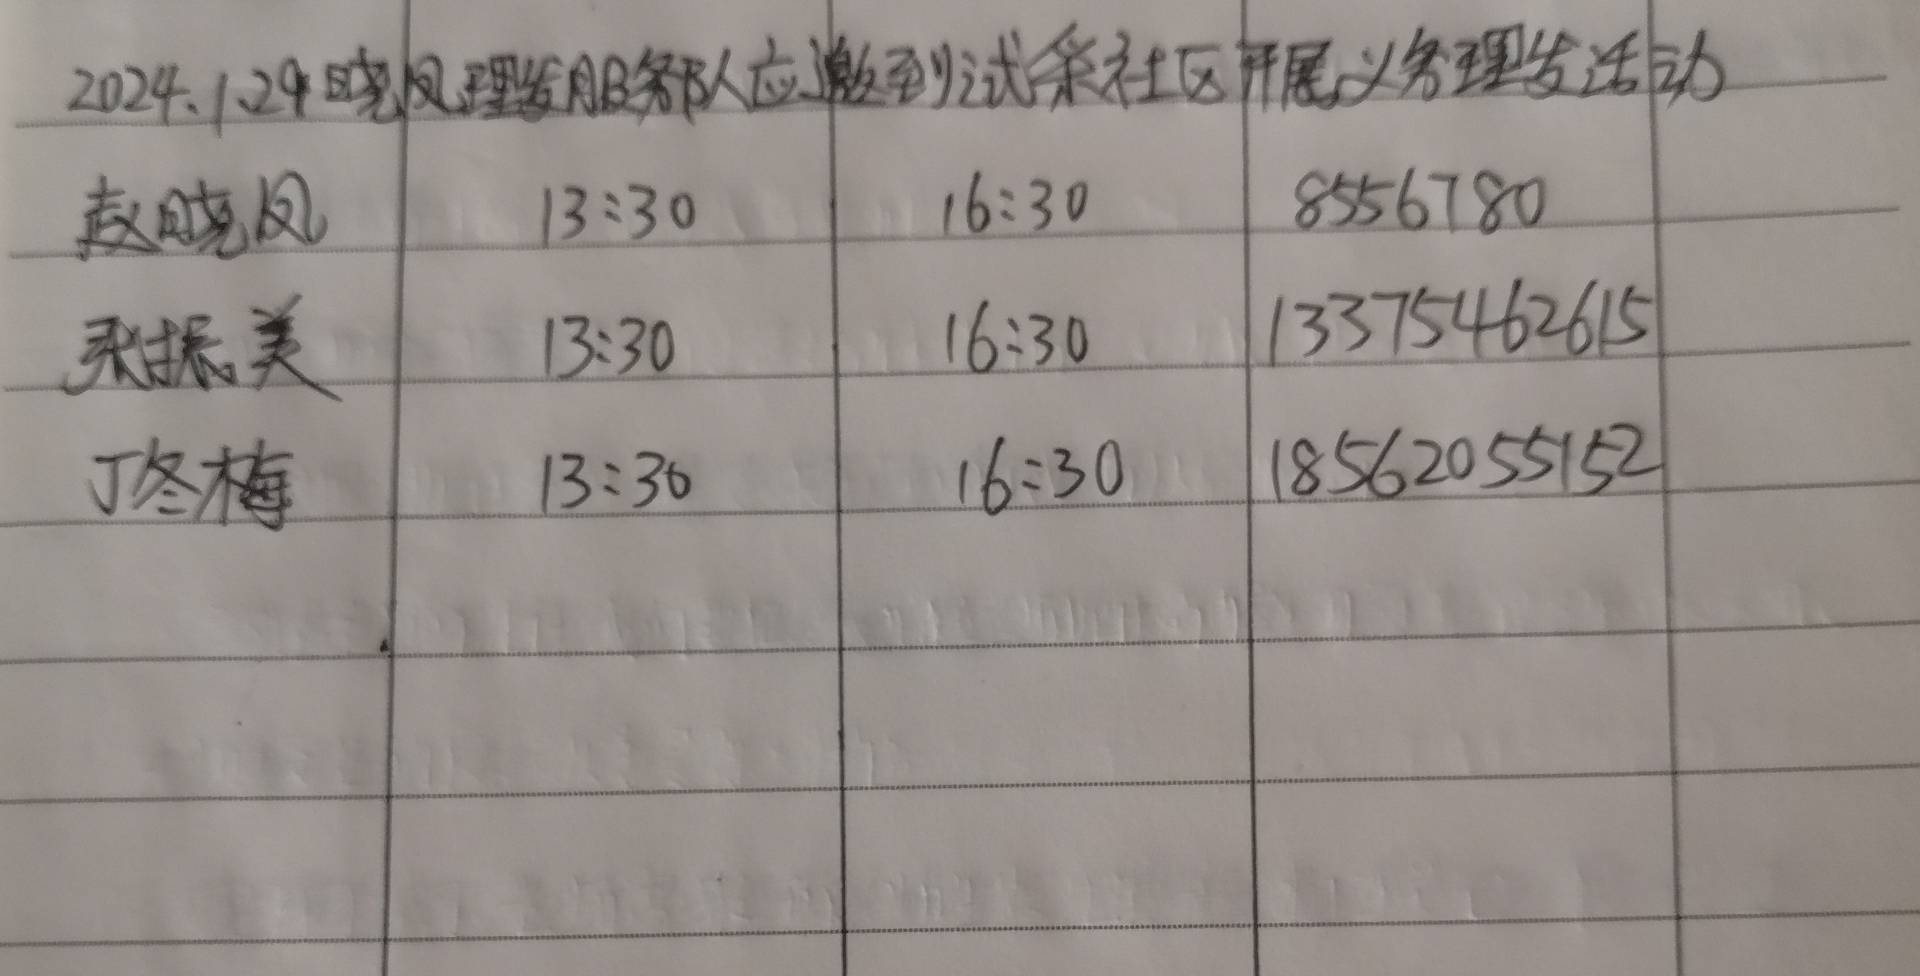 2024.1.29晓凤理发服务队应邀到试采社区开展义务理发活动
赵晓凤 13:30 16:30 8556780
张振美 13:30 16:30 13375462615
丁冬梅 13:30 16:30 18562055152